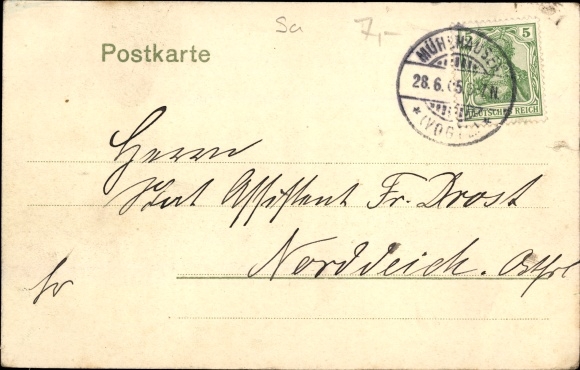 Sa 7,-
Postkarte
5
MÜHLHAUSEN
28.6.05
N.
(VOGTL.)
DEUTSCHES REICH
Herrn
Stat Assistent Fr. Drost
Norddeich. Ostfrl
In